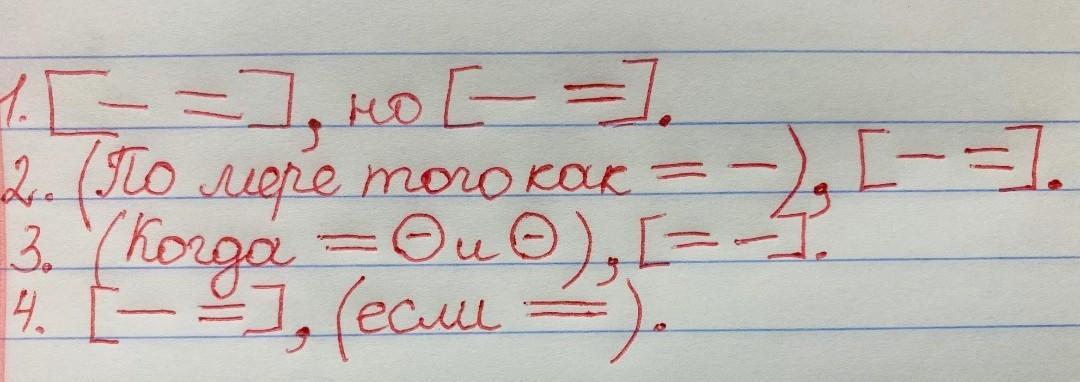 1. [— =], но [— =].
2. (По мере того как = —), [— =].
3. (Когда = ⊖ и ⊖), [= —].
4. [— =], (если =).